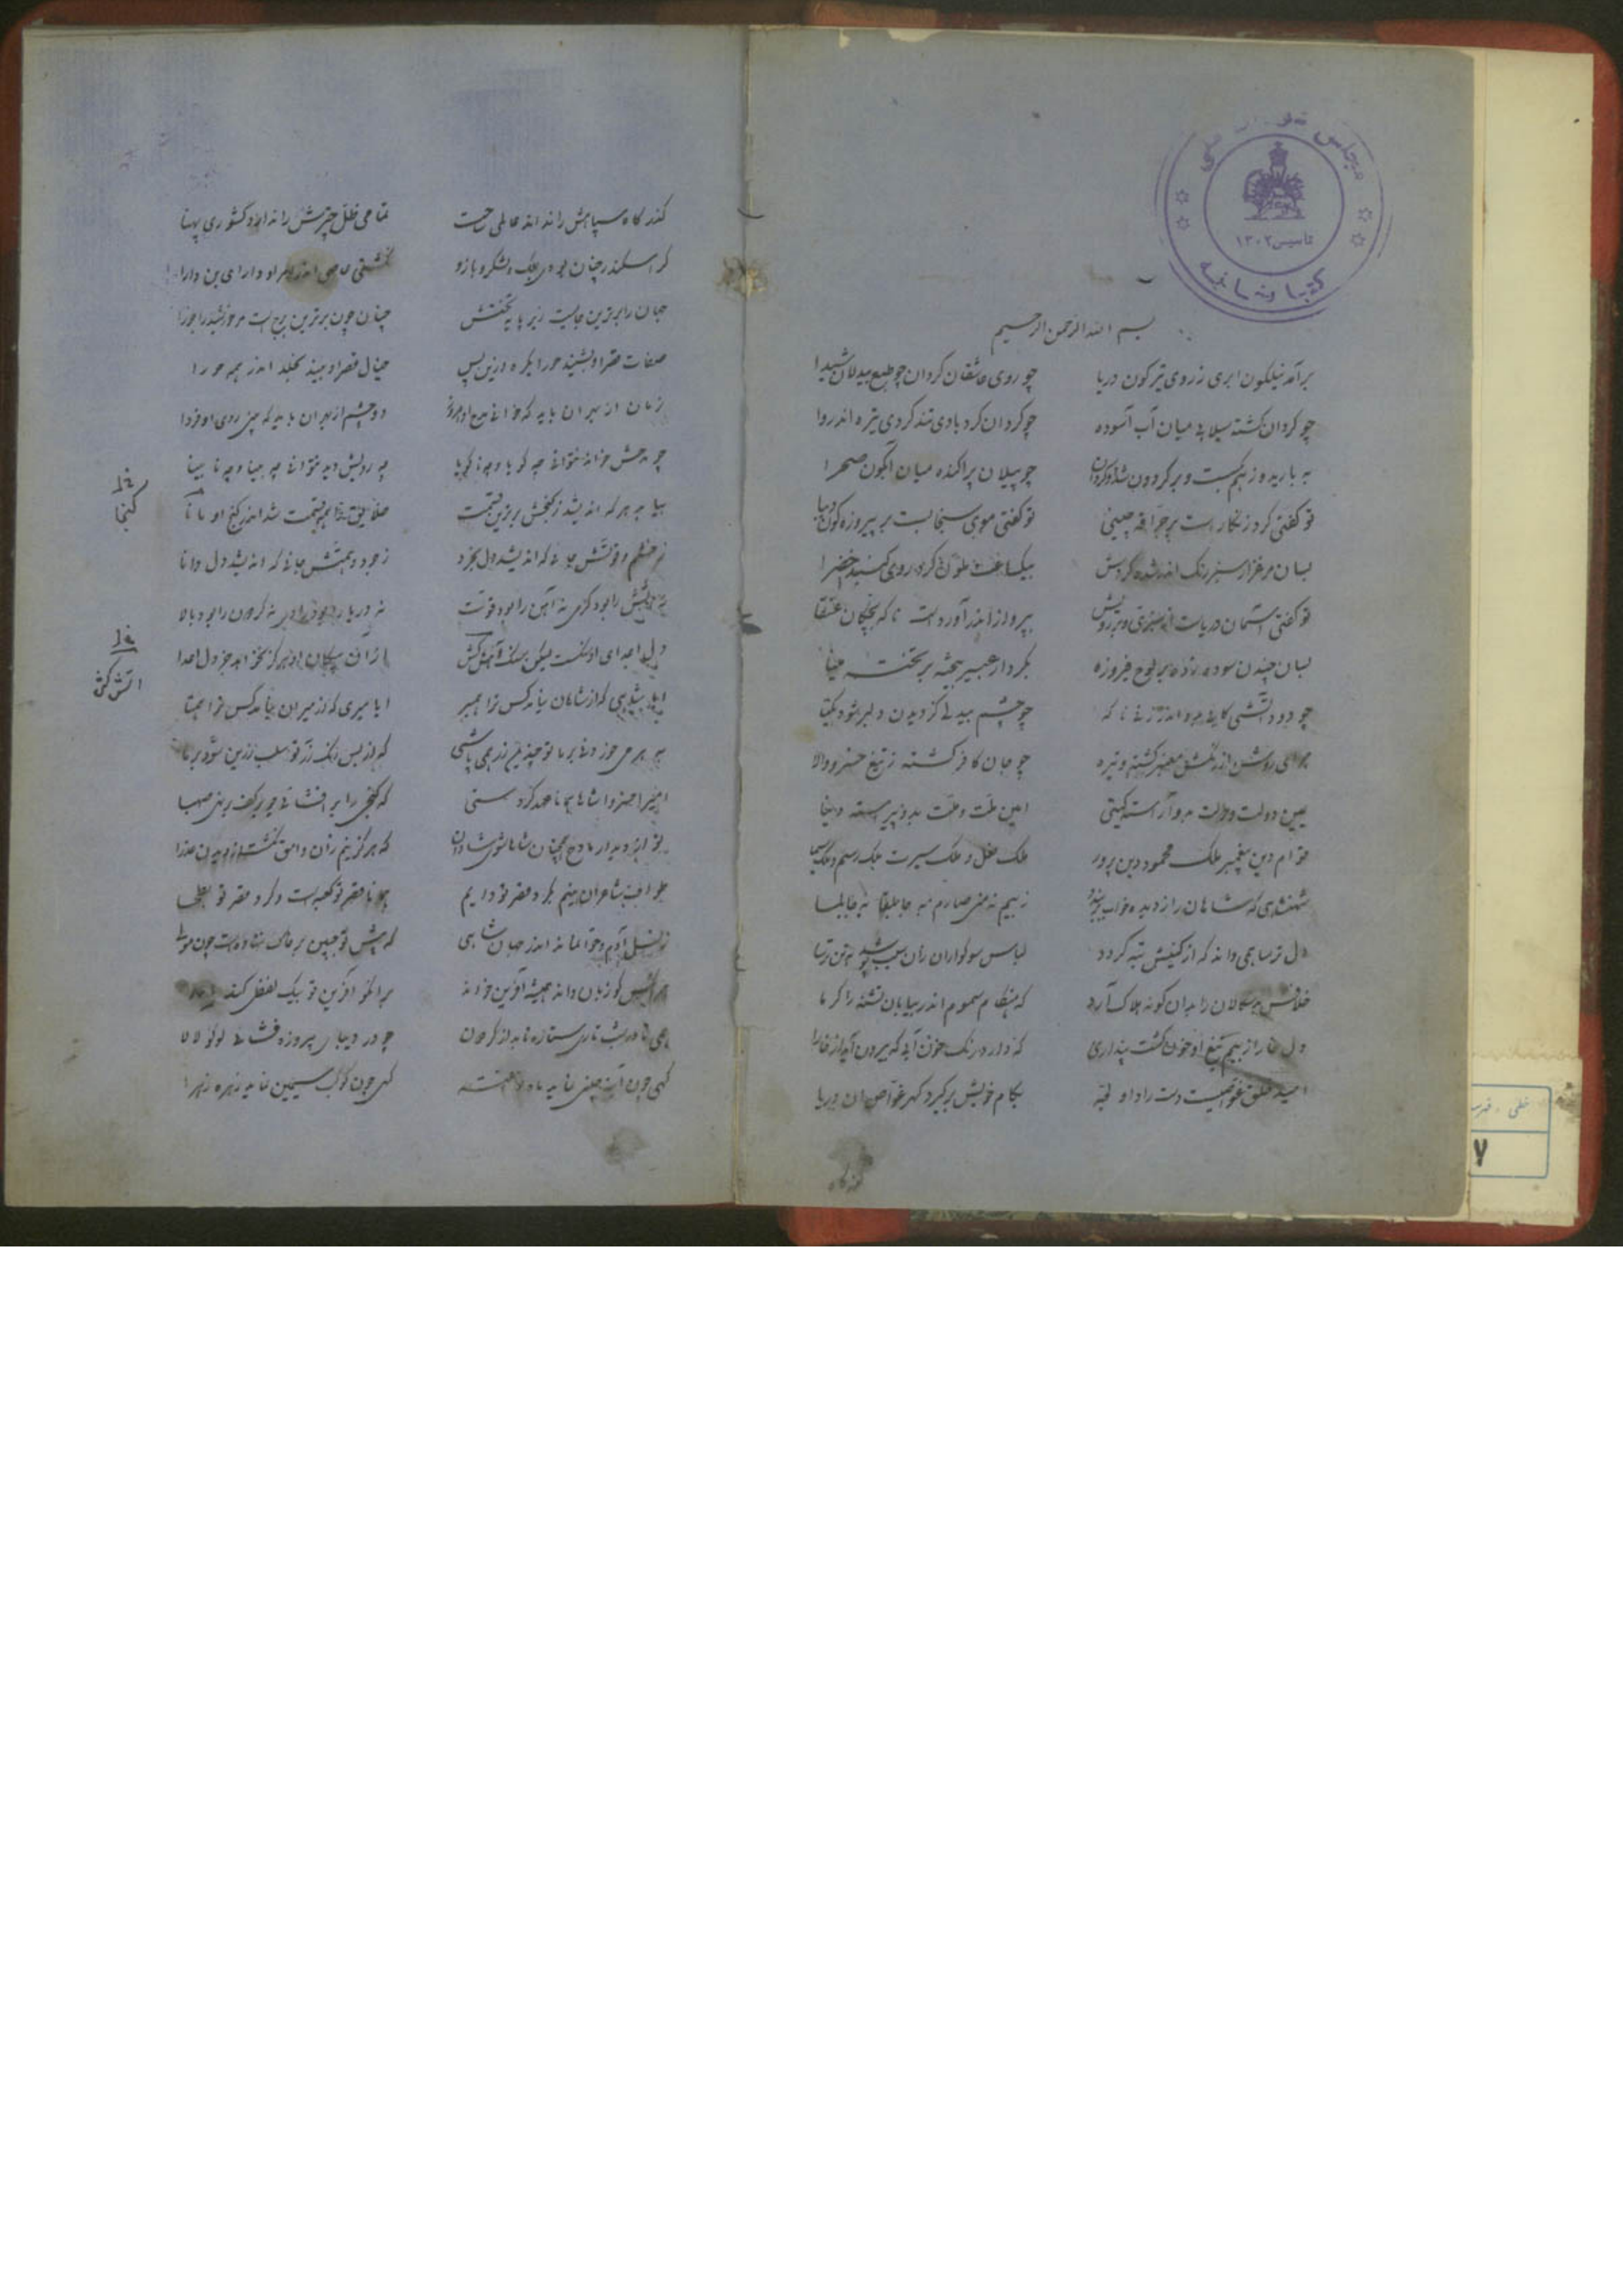 مجلس شورای ملی
تأسیس ۱۳۰۲
کتابخانه
بسم الله الرحمن الرحیم
برآمد نیلکون ابری ز روی نیلکون دریا چو روی عاشقان کردان چو طبع بیدلان شیدا
چو کردان کشته سیلابی میان آب آسوده چو کردان کرد بادی تند کردی تیره اندروا
به بارید و زهم بکسست و بر کردون چو پیلان پراکنده میان آبکون صحرا
تو کفتی کرد زنکار است بر چینی تو کفتی موی سنجابست بر پیروزه کون دیبا
بسان مرغزار سبز رنک اندر شده کردش بیکساعت ملون کرد روی کنبد خضرا
تو کفتی آسمان دریاست از سبزی و بر رویش بپرواز اندر آورده است ناکه بچکان عنقا
بسان چندن سوده زده بر لوح فیروزه بکردار عبیر بیخته بر تخته مینا
چو دود آتشی کابی برو اندر زنی ناکه چو چشم بیدلی کز دیدن دلبر شود بینا
هوای روشن از رنکش مغبر کشته و تیره چو جان کافر کشته ز تیغ خسرو والا
یمین دولت و دولت بدو آراسته کیتی امین ملت و ملت بدو پیراسته دنیا
قوام دین پیغمبر ملک محمود دین پرور ملک فعل و ملک سیرت ملک رسم و ملک سیما
شهنشاهی که شاهان را ز دیده خواب ز بیم نه منی صارم به جابلقا به جابلسا
دل ترسا همی داند که از کیشش تبه کردد لباس سوکواران زان سبب پوشد همی ترسا
خلافش بدسکالان را بدان کونه هلاک آرد که هنکام سموم اندر بیابان تشنه را کرما
دل خارا ز بیم تیغ او خون کشت پنداری که دارد رنک خون آید کهر بیرون از خارا
امید خلق غواصیست دست راد او لجه بکام خویش برکیرد کهر غواص ان دریا
گذرکاه
گذرکاه سپاهش را نداند عالمی حست تمامی ظل چترش را ندارد کشوری پهنا
کر اسکندر چنان بودی بملک و لشکر و بازو نکشتی عاصی اندر امر او دارای بن دارا
جهان را برترین جایست زیر پایه تختش چنان چون برترین برج است مر خورشید را جوزا
صفات قصر او بشنید حورا یکره و زین پس خیال قصر او بیند بخلد اندر همه حورا
زمان از بهر ان باید که خوانی مدح او امروز دو چشم از بهر ان باید که بینی روی او فردا
چو مدحش خواند نتوانی چه کویا و چه ناکویا چه رویش دید نتوانی چه بینا و چه نابینا
بیابد هر که اندیشد ز کنجش برترین قسمت خلایق تا قسمت شد اندر کنج او مانا
ز خشم و قوتش جایی که اندیشد دل بخرد ز جود و همتش جائی که اندیشد دل دانا
نه دریا را بود رادی نه کردون را بود بالا
دل اعدای او سنکست لیکن سنک آتش کش از آن پیکان او هرکز نجوید جز دل اعدا
ایا شاهی که از شاهان نیامد کس ترا همسر ایا میری که از میران نیامد کس ترا همتا
که از بس رنک زر تو سلب زرین شود بر ما
امیرا خسروا شاها همانا عهد کرده‌ستی که کنجی را بر افشانی چو بر کف برنهی صهبا
که هرکز بینم زان وامق نکشت از دیدن عذرا
طواف شاعران بینم بکرد قصر تو دایم همانا قصر تو کعبه‌ست و کرد قصر تو بطحا
ز نسل آدم و حوا نماند اندر جهان شاهی که پیش تو جبین بر خاک ننهاده‌ست چون مولی
هرانکس کو زبان دارد همیشه آفرین خواند
همی تا در شب تاری ستاره تابد از کردون چو در دیبای پیروزه فشانی لولو لالا
کهی چون آینه چینی نماید ماه دو هفته کهی چون کوکب سیمین نماید زهره زهرا
کنجا
اتش کش
خطی
۷